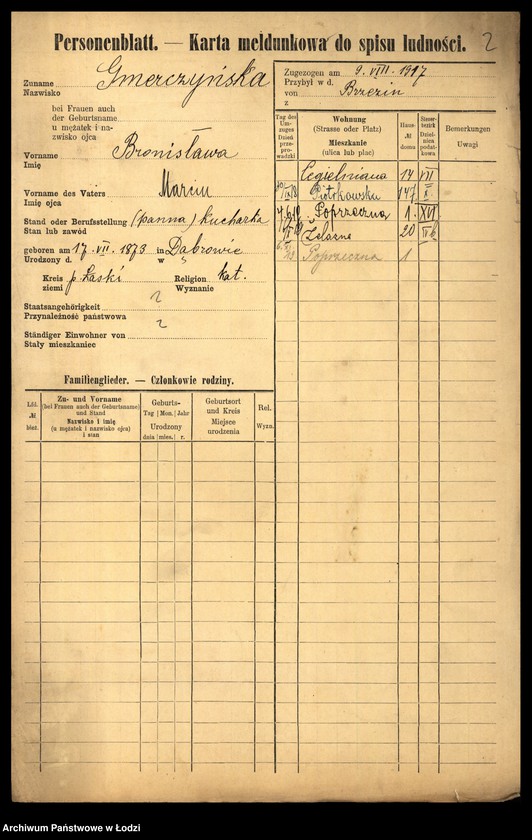 Personenblatt. — Karta meldunkowa do spisu ludności.
2
Zuname Gmerczyńska
Nazwisko
bei Frauen auch
der Geburtsname
u mężatek i na-
zwisko ojca
Vorname Bronisława
Imię
Vorname des Vaters Marcin
Imię ojca
Stand oder Berufsstellung (panna) kucharka
Stan lub zawód
geboren am 17. VII. 1873 in Dąbrowie
Urodzony d. w
Kreis p. Łaski Religion kat.
ziemi Wyznanie
Staatsangehörigkeit ?
Przynależność państwowa
Ständiger Einwohner von ?
Stały mieszkaniec
Zugezogen am 9. VIII. 1917
Przybył w d.
von Brzezin
z
Tag des Um-zuges Dzień prze-prowadzki
Wohnung (Strasse oder Platz) Mieszkanie (ulica lub plac)
Haus-№ domu
Steuer-bezirk Dziel-nica podat-kowa
Bemerkungen Uwagi
Cegielniana 14 VII
Piotrkowska 147 X
Poprzeczna 1. XVI
Żelazna 20
Poprzeczna 1
Familienglieder. — Członkowie rodziny.
Lfd. № bież.
Zu- und Vorname (bei Frauen auch der Geburtsname) und Stand Nazwisko i imię (u mężatek i nazwisko ojca) i stan
Geburts- Tag Mon. Jahr Urodzony dnia mies. r.
Geburtsort und Kreis Miejsce urodzenia
Rel. Wyzn.
Archiwum Państwowe w Łodzi